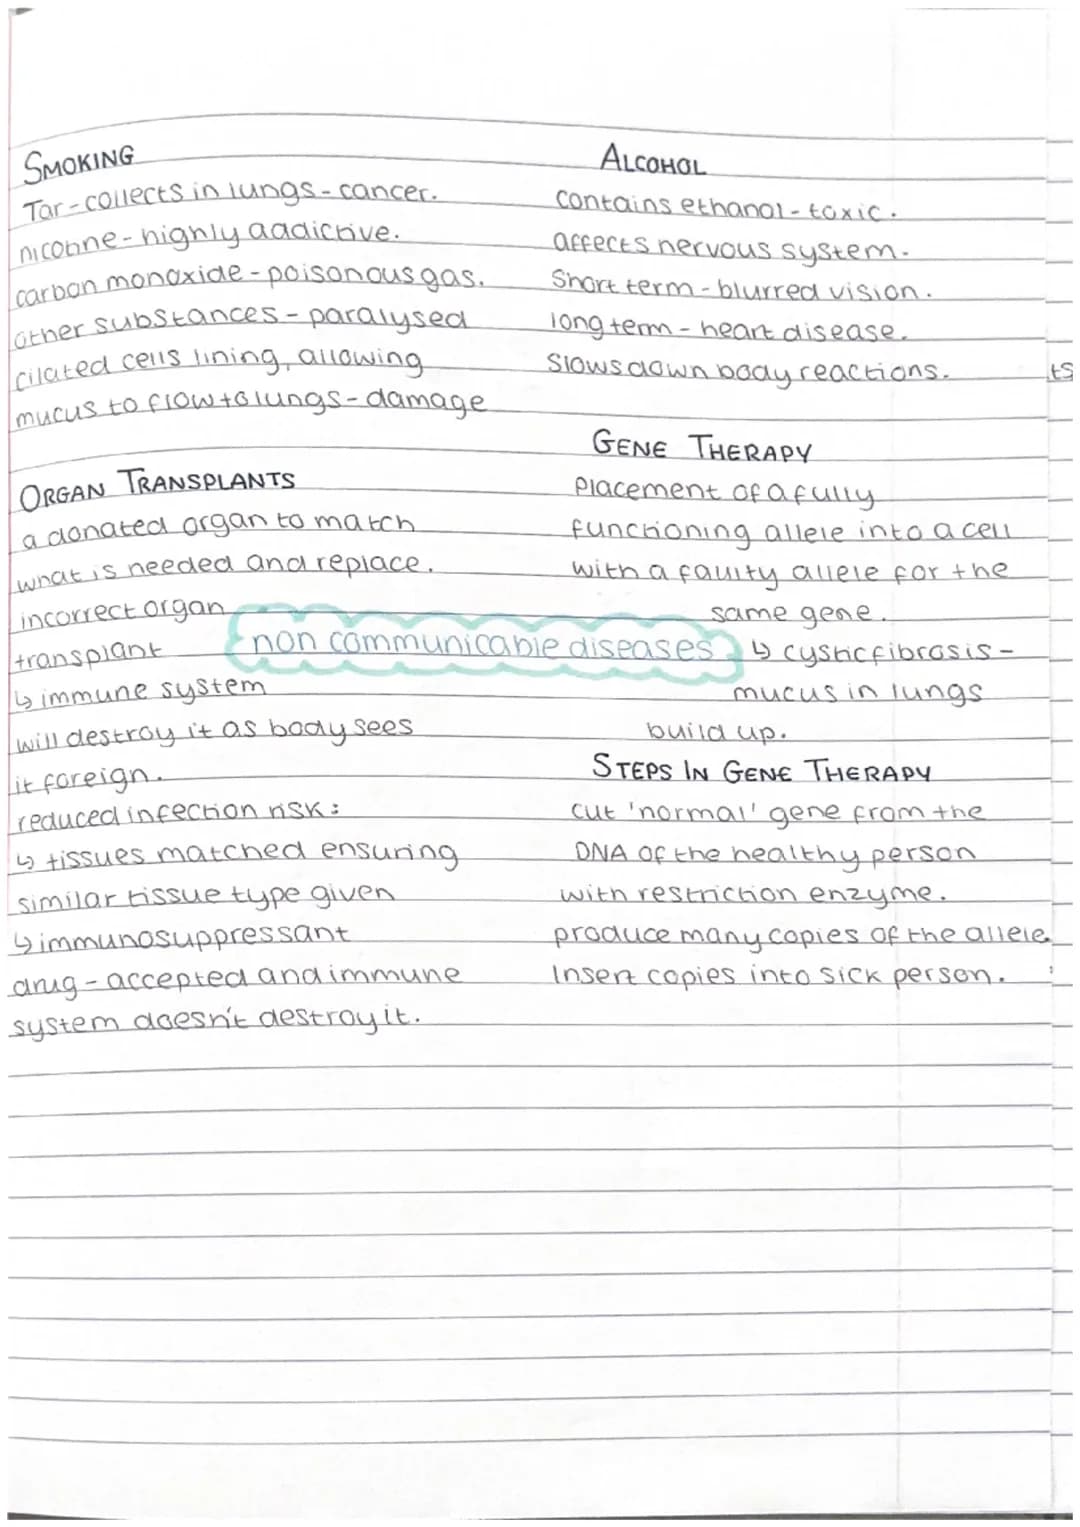 SMOKING
Tar - collects in lungs - cancer.
nicotine - highly addictive.
carbon monoxide - poisonous gas.
other substances - paralysed
cilated cells lining, allowing
mucus to flow to lungs - damage
ALCOHOL
contains ethanol - toxic.
affects nervous system.
Short term - blurred vision.
long term - heart disease.
Slows down body reactions.
ts
ORGAN TRANSPLANTS
a donated organ to match
what is needed and replace.
incorrect organ
transplant
↳ immune system
will destroy it as body sees
it foreign.
reduced infection risk:
↳ tissues matched ensuring
similar tissue type given
↳ immunosuppressant
drug - accepted and immune
system doesn't destroy it.
non communicable diseases
GENE THERAPY
Placement of a fully
functioning allele into a cell
with a faulty allele for the
same gene.
↳ cystic fibrosis -
mucus in lungs
build up.
STEPS IN GENE THERAPY
cut 'normal' gene from the
DNA of the healthy person
with restriction enzyme.
produce many copies of the allele.
Insert copies into sick person.